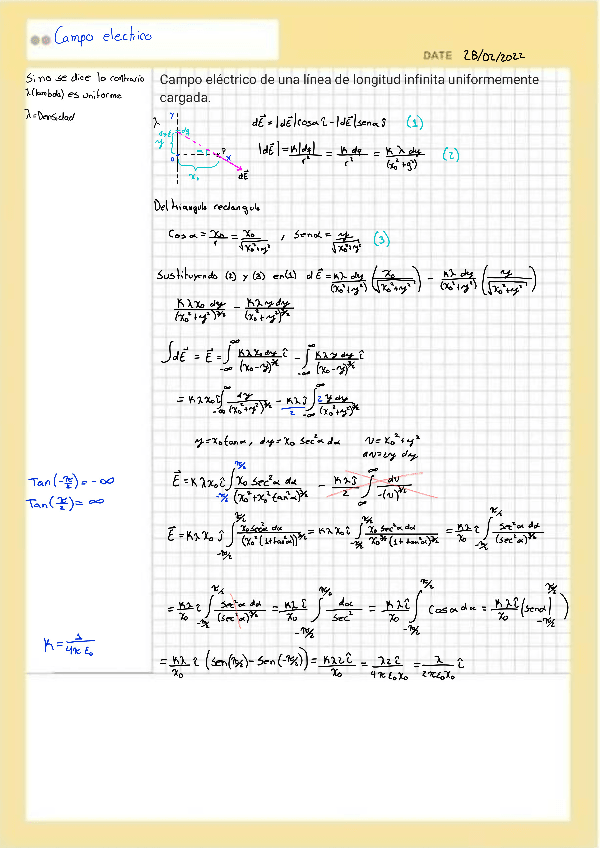 Campo electrico
DATE 28/02/2022
Si no se dice lo contrario
λ(lambda) es uniforme
λ=Densidad
Campo eléctrico de una línea de longitud infinita uniformemente
cargada.
λ y
dq
y
r
0 α P x
x₀
dE⃗
dE⃗ = |dE⃗|cosα î - |dE⃗|senα ĵ (1)
|dE⃗| = K|dq|/r² = K dq/r² = K λ dy/(x₀²+y²) (2)
Del triangulo rectangulo
Cos α = x₀/r = x₀/√(x₀²+y²) , Senα = y/√(x₀²+y²) (3)
Sustituyendo (2) y (3) en(1) dE⃗ = Kλ dy/(x₀²+y²) (x₀/√(x₀²+y²)) - Kλ dy/(x₀²+y²) (y/√(x₀²+y²))
Kλx₀ dy/(x₀²+y²)^3/2 - Kλ y dy/(x₀²+y²)^3/2
∫dE⃗ = E⃗ = ∫_-∞^∞ Kλx₀ dy/(x₀-y)^3/2 î - ∫_-∞^∞ Kλ y dy/(x₀-y)^3/2 î
= Kλx₀ î ∫_-∞^∞ dy/(x₀²+y²)^3/2 - Kλĵ/2 ∫_-∞^∞ 2y dy/(x₀²+y²)^3/2
y=x₀tanα, dy=x₀ sec²α dα v=x₀²+y²
dv=2y dy
Tan(-π/2) = -∞
Tan(π/2) = ∞
E⃗ = Kλx₀ î ∫_-π/2^π/2 x₀ sec²α dα/(x₀²+x₀² tan²α)^3/2 - Kλĵ/2 ∫_∞^∞ dv/-(v)^3/2
E⃗ = Kλx₀ ĵ ∫_-π/2^π/2 x₀sec²α dα/(x₀²(1+tan²α))^3/2 = Kλx₀ î ∫_-π/2^π/2 x₀ sec²α dα/x₀³(1+tan²α)^3/2 = Kλ/x₀ î ∫_-π/2^π/2 sec²α dα/(sec²α)^3/2
= Kλ/x₀ î ∫_-π/2^π/2 sec²α dα/(sec²α)^3/2 = Kλ î/x₀ ∫_-π/2^π/2 dα/sec² = Kλ î/x₀ ∫_-π/2^π/2 Cosα dα = Kλ î/x₀ (senα|_-π/2^π/2)
K = 1/4πε₀
= Kλ/x₀ î (Sen(π/2) - Sen(-π/2)) = Kλ2 î/x₀ = λ2 î/4πε₀x₀ = λ/2πε₀x₀ î